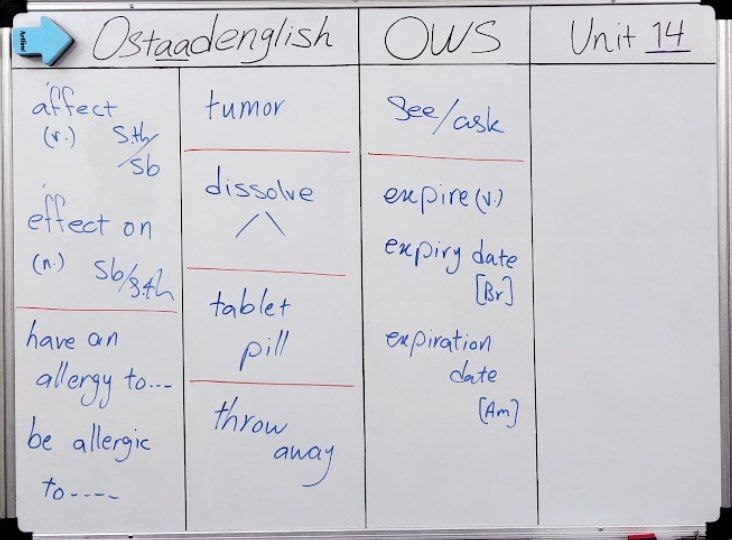 Artline
Ostaadenglish
OWS
Unit 14
affect
(v.) s.th/
/sb
effect on
(n.) sb/s.th
have an
allergy to---
be allergic
to----
tumor
dissolve
tablet
pill
throw
away
see/ask
expire (v.)
expiry date
[Br]
expiration
date
[Am]